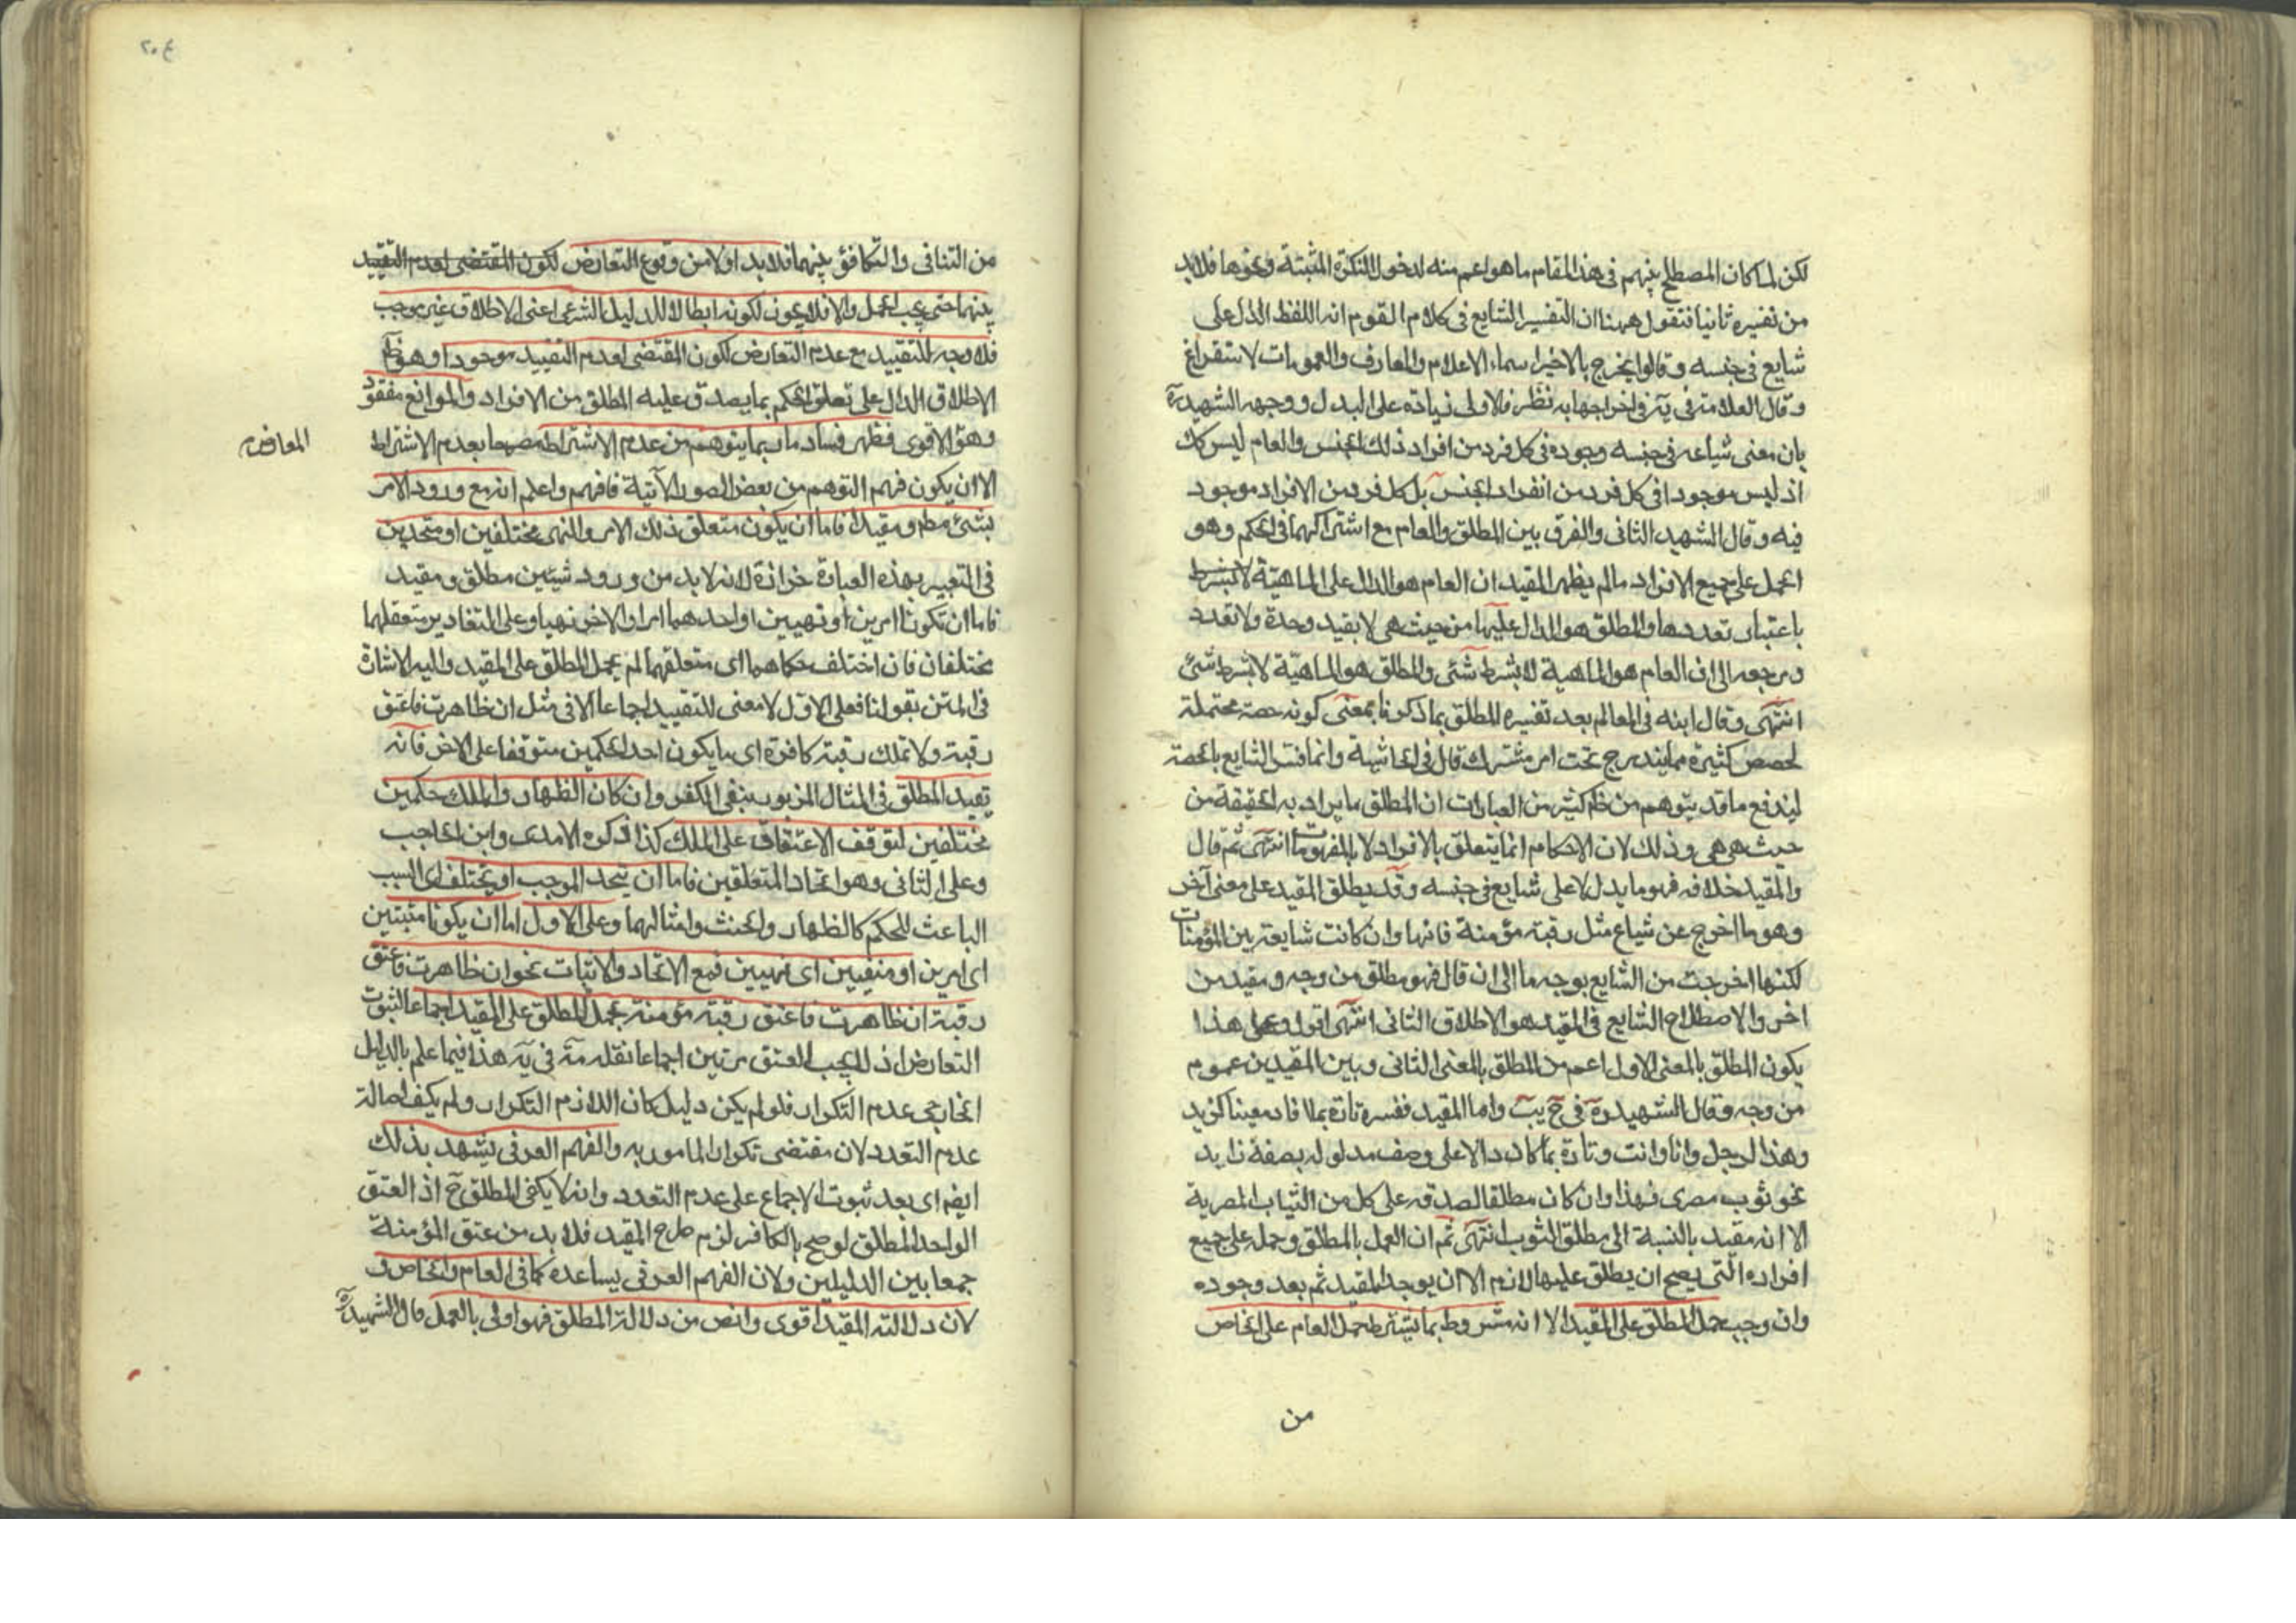 لكن لما كان المصطلح بينهم في هذا المقام ما هو اعم منه لدخول النكرة المثبتة ونحوها فلابد
من تفسيره ثانيا فنقول ههنا ان التفسير الشايع في كلام القوم انه اللفظ الدال على
شايع في جنسه وقالوا يخرج بالاخير اسماء الاعلام والمعارف والعمومات لاستغراق
وقال العلامة في يه في اخراجها به نظر فالاولى زيادة على البدل ووجهه الشهيد ره
بان معنى شياعه في جنسه وجوده في كل فرد من افراد ذلك الجنس والعام ليس كك
اذ ليس موجودا في كل فرد من انفراد الجنس بل كل فرد من الافراد موجود
فيه وقال الشهيد الثاني والفرق بين المطلق والعام مع اشتراكهما في الحكم وهو
الحمل على جميع الافراد ما لم يظهر المقيد ان العام هو الدال على الماهية لا بشرط
باعتبار تعددها والمطلق هو الدال عليها من حيث هي لا بقيد وحدة ولا تعدد
ومرجعه الى ان العام هو الماهية لا بشرط شئ والمطلق هو الماهية لا بشرط شئ
انتهى وقال ابنه في المعالم بعد تفسيره المطلق بما ذكرنا بمعنى كونه حصة محتملة
لحصص كثيرة مما يندرج تحت امر مشترك قال في الحاشية وانما فسر الشايع بالحصة
ليندفع ما قد يتوهم من ظم كثير من العبارات ان المطلق ما يراد به الحقيقة من
حيث هي هي وذلك لان الاحكام انما يتعلق بالافراد لا بالمفهومات انتهى ثم قال
والمقيد خلافه فهو ما يدل لا على شايع في جنسه وقد يطلق المقيد على معنى آخر
وهو ما اخرج عن شياع مثل رقبة مؤمنة فانها وان كانت شايعة بين المؤمنات
لكنها اخرجت من الشايع بوجه ما الى ان قال فهو مطلق من وجه ومقيد من
اخر والاصطلاح الشايع في المقيد هو الاطلاق الثاني انتهى اقول وعلى هذا
يكون المطلق بالمعنى الاول اعم من المطلق بالمعنى الثاني وبين المقيدين عموم
من وجه وقال الشهيد ره في ح يب واما المقيد ففسره تارة بما افاد معينا كزيد
وهذا الرجل وانا وانت وتارة بما كان دالا على وصف مدلوله بصفة زايد
نحو ثوب مصرى فهذا وان كان مطلقا لصدقه على كل من الثياب المصرية
الا انه مقيد بالنسبة الى مطلق الثوب انتهى ثم ان العمل بالمطلق وحمله على جميع
افراده التى يصح ان يطلق عليها لازم الا ان يوجد المقيد ثم بعد وجوده
وان وجب حمل المطلق على المقيد الا انه مشروط بما يشترط حمل العام على الخاص
من
٢٠٤
من التنافى والتكافؤ بينهما فلابد اولا من وقوع التعارض لكون المقتضى لعدم التقييد
بينهما حتى يجب الحمل والا فلا يجوز لكونه ابطالا للدليل الشرعى اعنى الاطلاق غير موجب
فلا وجه للتقييد مع عدم التعارض لكون المقتضى لعدم التقييد موجودا وهو ظم
الاطلاق الدال على تعلق الحكم بما يصدق عليه المطلق من الافراد والموانع مفقود
وهو الاقوى فظهر فساد ما ربما يتوهم من عدم الاشتراط مصرحا بعدم الاشتراط
المعارض
الا ان يكون فهم التوهم من بعض الصور الآتية فافهم واعلم انه مع ورود الامر
بشئ مطم ومقيدا فاما ان يكون متعلق ذلك الامر والنهى مختلفين او متحدين
فى التعبير بهذه العبارة حزازة لانه لابد من ورود شيئين مطلق ومقيد
فاما ان تكونا امرين او نهيين او احدهما امرا والاخر نهيا وعلى التقادير متعلقهما
مختلفان فان اختلف حكماهما اى متعلقهما لم يحمل المطلق على المقيد واليه الاشارة
فى المتن بقولنا فعلى الاول لا معنى للتقييد اجماعا الا فى مثل ان ظاهرت فاعتق
رقبة ولا تملك رقبة كافرة اى ما يكون احد الحكمين متوقفا على الاخر فانه
تقييد المطلق فى المثال المزبور بنفى الكفر وان كان الظهار والملك حكمين
مختلفين لتوقف الاعتاق على الملك كذا ذكره الامدى وابن الحاجب
وعلى الثانى وهو اتحاد المتعلقين فاما ان يتحد الموجب او يختلف اى السبب
الباعث للحكم كالظهار والحنث وامثالهما وعلى الاول اما ان يكونا مثبتين
اى امرين او منفيين اى نهيين فمع الاتحاد والاثبات نحو ان ظاهرت فاعتق
رقبة ان ظاهرت فاعتق رقبة مؤمنة يحمل المطلق على المقيد اجماعا لثبوت
التعارض اذ لا يجب العتق مرتين اجماعا نقله مة فى يه هذا فيما علم بالدليل
الخارجى عدم التكرار فلو لم يكن دليل كان اللازم التكرار ولم يكف اصالة
عدم التعدد لان مقتضى تكرار المامور به والفهم العرفى يشهد بذلك
ايضم اى بعد ثبوت الاجماع على عدم التعدد وانه لا يكفى المطلق ح اذ العتق
الواحد المطلق لو صح بالكافر لزم طرح المقيد فلابد من عتق المؤمنة
جمعا بين الدليلين ولان الفهم العرفى يساعده كما فى العام والخاص و
لان دلالته المقيد اقوى وانص من دلالة المطلق فهو اولى بالعمل قال الشهيد ره